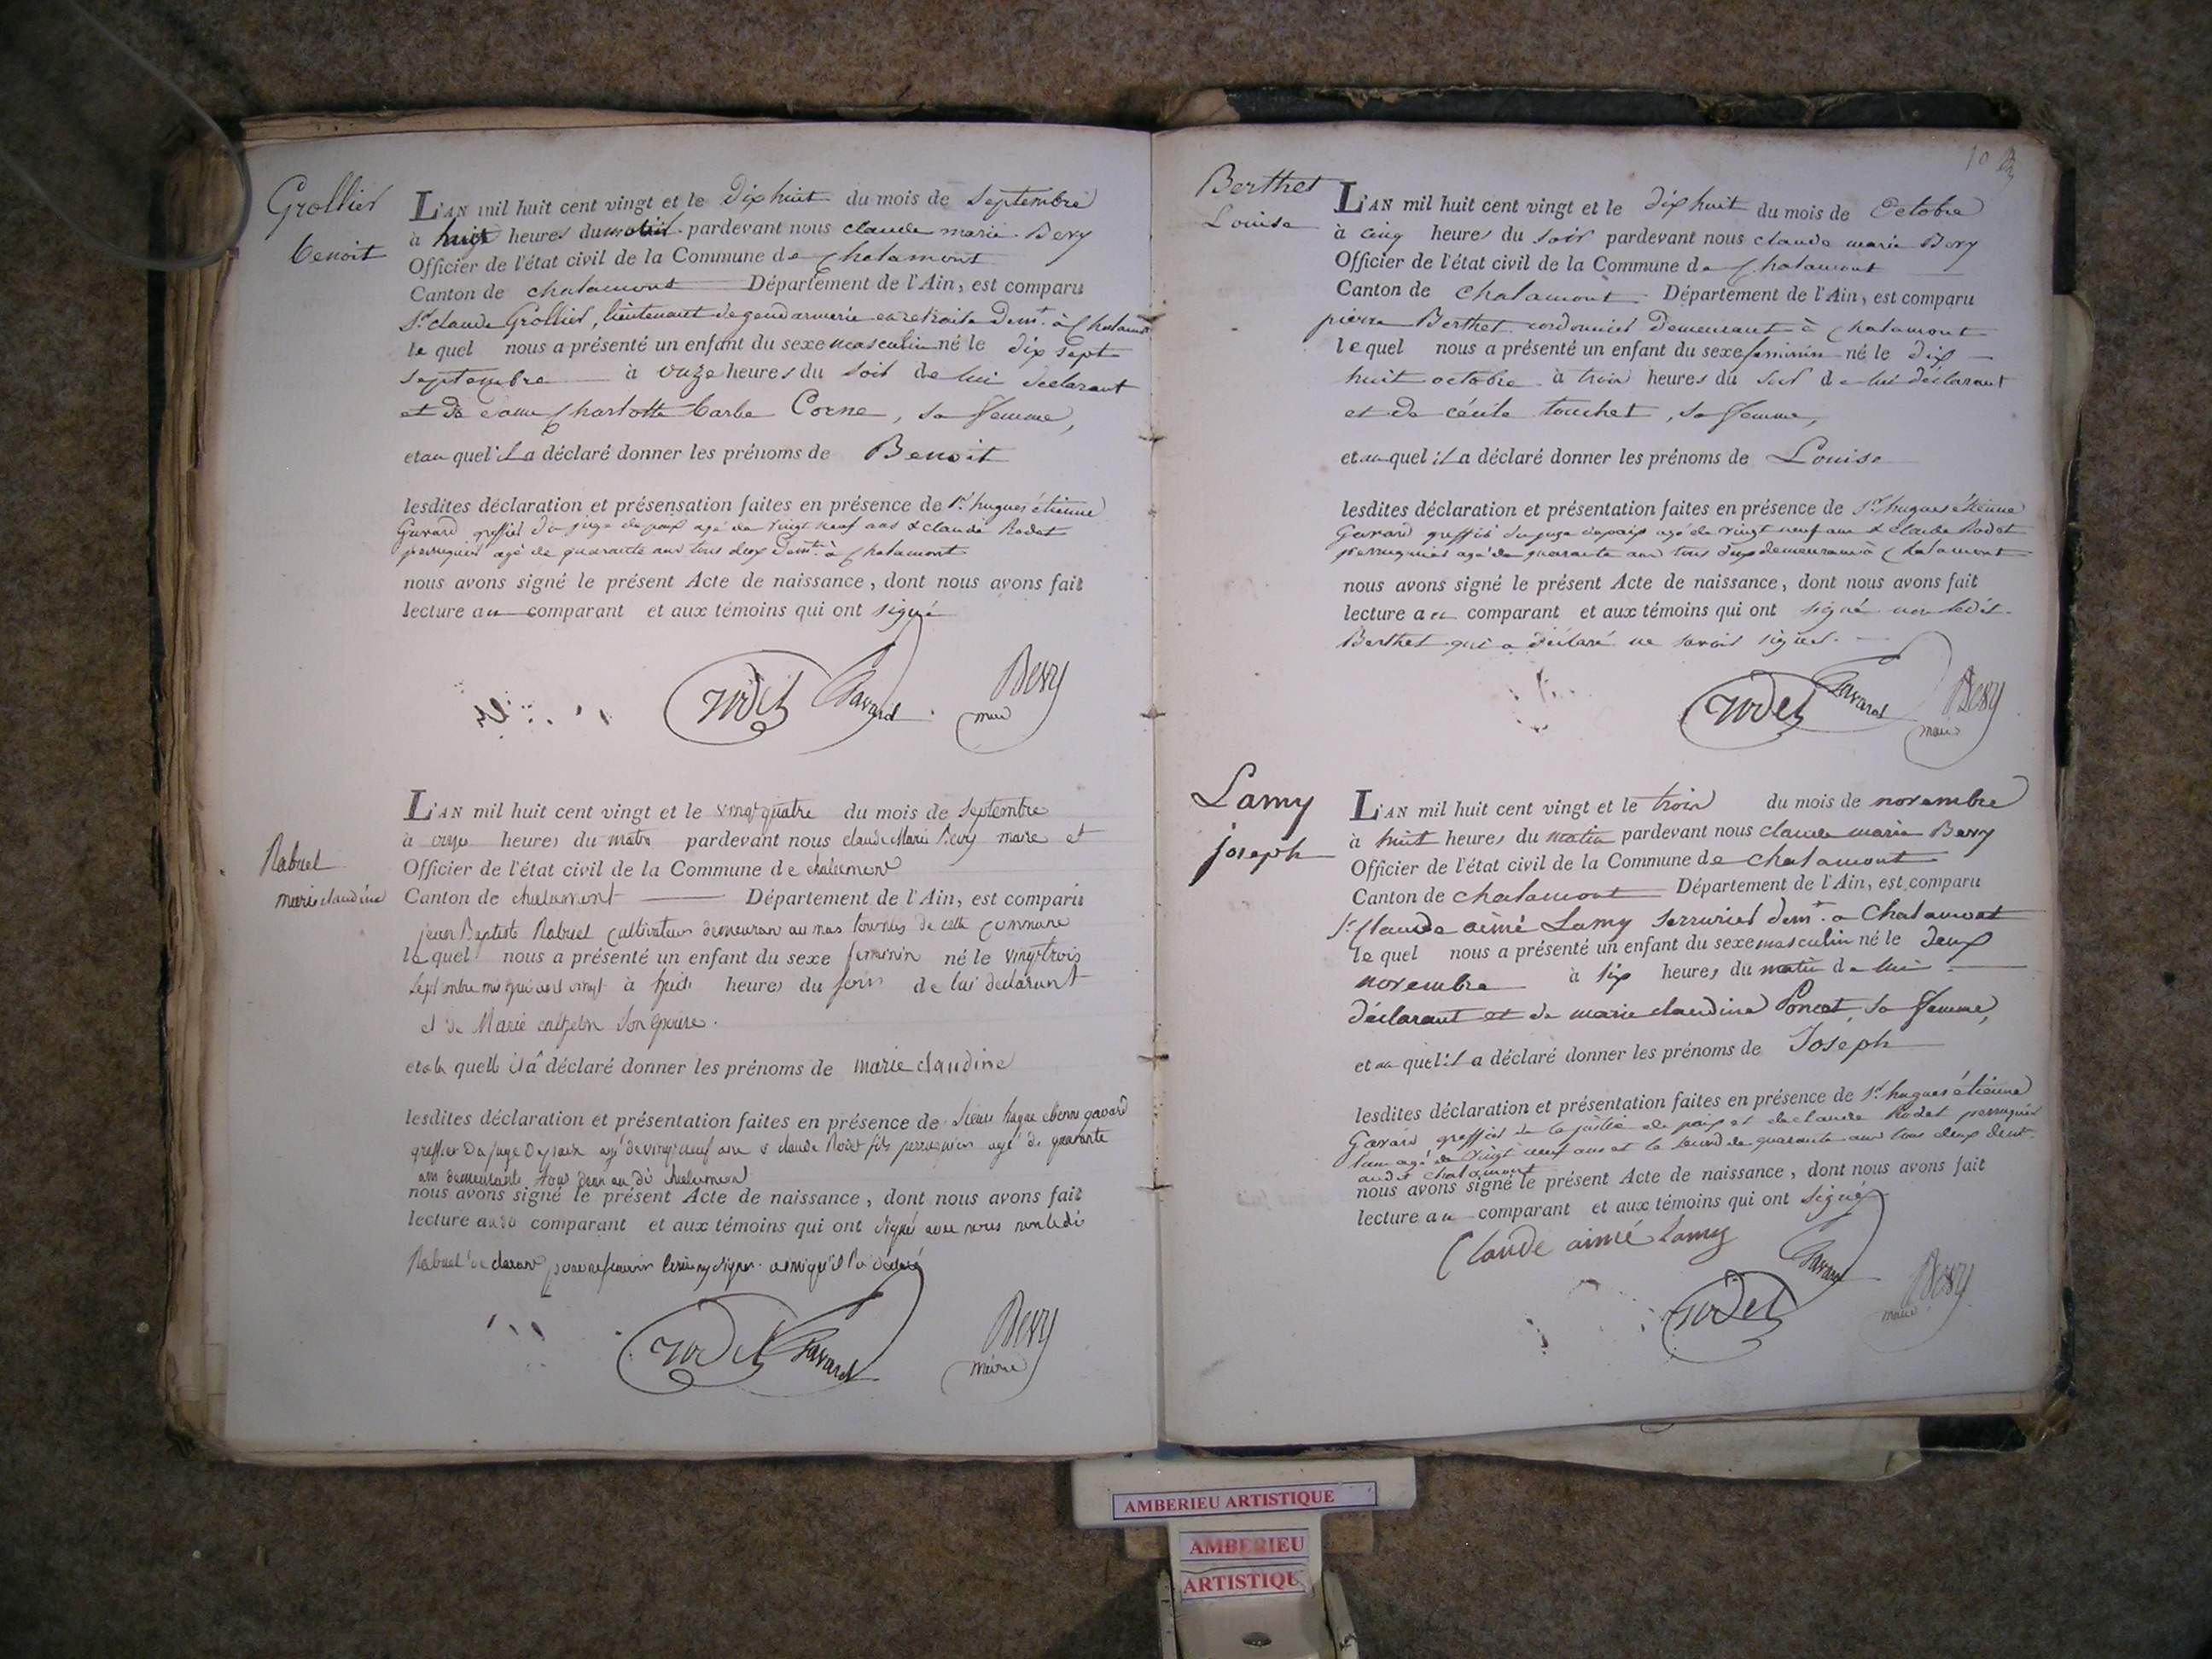 Grollier
benoit
L'AN mil huit cent vingt et le dix huit du mois de Septembre
à heures du pardevant nous claude marie Bevy
Officier de l'état civil de la Commune de Chalamont
Canton de chalamont Département de l'Ain, est comparu
Sr. claude Grollier, lieutenant de gendarmerie en retraite demt. à Chalamont
lequel nous a présenté un enfant du sexe masculin né le dix sept
septembre à onze heures du soir de lui déclarant
et de dame Charlotte barbe Corne, sa femme,
et au quel il a déclaré donner les prénoms de Benoit
lesdites déclaration et présensation faites en présence de Sr. hugues étienne
Gavard greffier du juge de paix agé de vingt neuf ans & claude Rodet
perruquier agé de quarante ans tous deux demt. à Chalamont
nous avons signé le présent Acte de naissance, dont nous avons fait
lecture au comparant et aux témoins qui ont signé
rodet Gavard Bevy
maire
Rabuel
marie claudine
L'AN mil huit cent vingt et le vingt quatre du mois de Septembre
à onze heures du matin pardevant nous claude Marie Bevy maire et
Officier de l'état civil de la Commune de chalamont
Canton de chalamont Département de l'Ain, est comparu
jean Baptiste Rabuel cultivateur demeurant au mas de cette commune
lequel nous a présenté un enfant du sexe feminin né le vingt trois
Septembre mil huit cent vingt à huit heures du soir de lui declarant
et de Marie son epouse.
et a la quelle il a déclaré donner les prénoms de marie claudine
lesdites déclaration et présentation faites en présence de Sieur hugue etienne gavard
greffier du juge de paix agé de vingt neuf ans & claude Rodet fils perruquier agé de quarante
ans demeurants tous deux au dit chalamont
nous avons signé le présent Acte de naissance, dont nous avons fait
lecture audit comparant et aux témoins qui ont signés avec nous non ledit
Rabuel declarant pour ne savoir signer ainsi qu'il l'a déclaré
rodet Gavard Bevy
maire
10
Berthet
Louise
L'AN mil huit cent vingt et le dix huit du mois de Octobre
à cinq heures du soir pardevant nous claude marie Bevy
Officier de l'état civil de la Commune de Chalamont
Canton de Chalamont Département de l'Ain, est comparu
pierre Berthet cordonnier demeurant à Chalamont
lequel nous a présenté un enfant du sexe feminin né le dix
huit octobre à trois heures du soir de lui déclarant
et de cécile touchet, sa femme,
et au quel il a déclaré donner les prénoms de Louise
lesdites déclaration et présentation faites en présence de Sr. hugues étienne
Gavard greffier du juge de paix agé de vingt neuf ans & claude Rodet
perruquier agé de quarante ans tous deux demeurant à Chalamont
nous avons signé le présent Acte de naissance, dont nous avons fait
lecture au comparant et aux témoins qui ont signé non ledit
Berthet qui a déclaré ne savoir signer.
rodet Gavard Bevy
maire
Lamy
joseph
L'AN mil huit cent vingt et le trois du mois de novembre
à huit heures du matin pardevant nous claude marie Bevy
Officier de l'état civil de la Commune de chalamont
Canton de chalamont Département de l'Ain, est comparu
Sr. Claude aimé Lamy serrurier demt. a Chalamont
lequel nous a présenté un enfant du sexe masculin né le deux
novembre à six heures du matin de lui
déclarant et de marie claudine Poncet, sa femme,
et au quel il a déclaré donner les prénoms de Joseph
lesdites déclaration et présentation faites en présence de Sr. hugues étienne
Gavard greffier de la justice de paix et de claude Rodet perruquier
l'un agé de vingt neuf ans et le second de quarante ans tous deux demt.
audit chalamont
nous avons signé le présent Acte de naissance, dont nous avons fait
lecture au comparant et aux témoins qui ont signé
Claude aimé Lamy Gavard
rodet Bevy
maire
AMBERIEU ARTISTIQUE
AMBERIEU
ARTISTIQUE